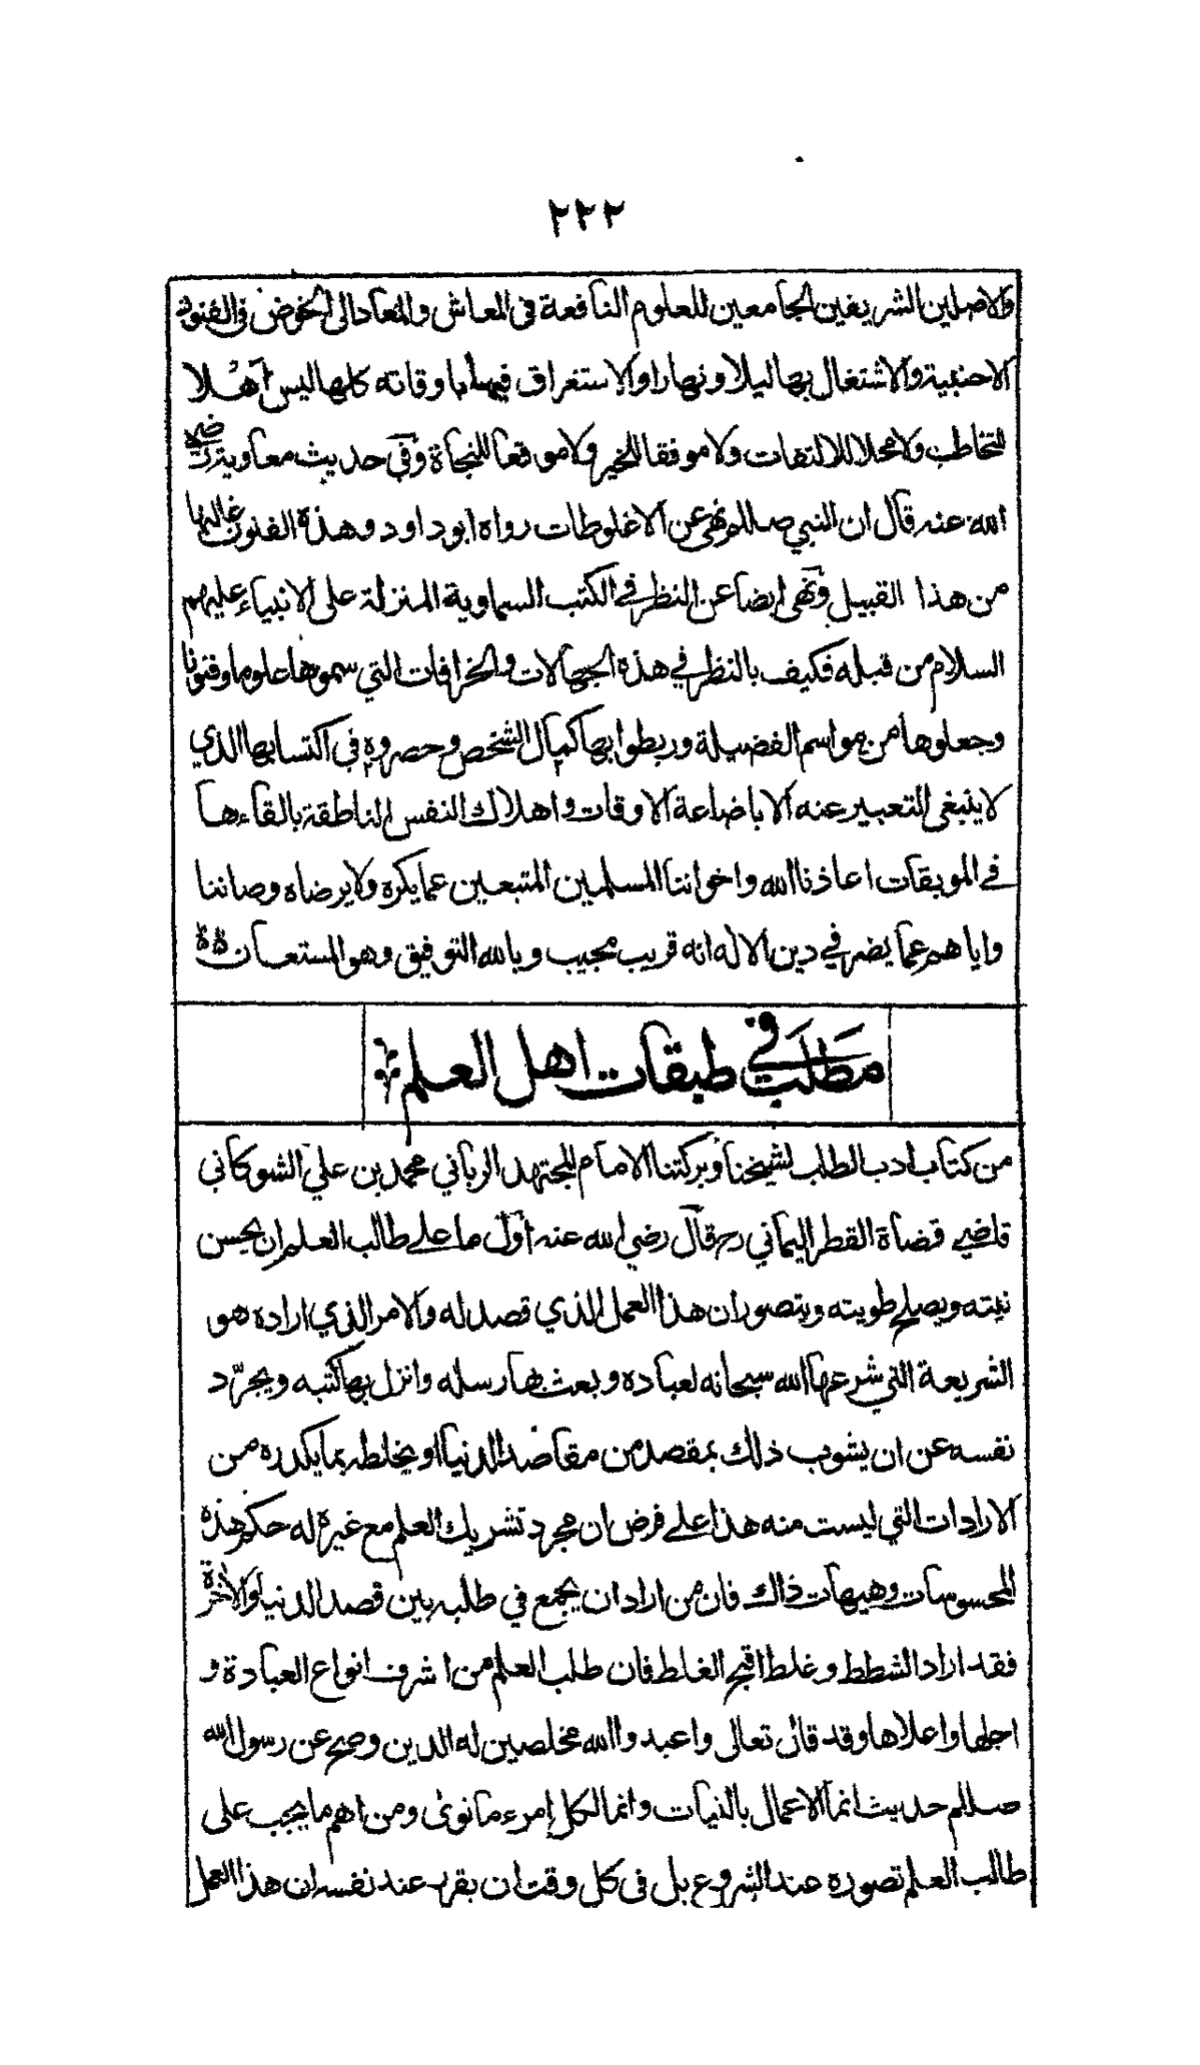 ٢٢٢
والاصلين الشريفين الجامعين للعلوم النافعة في المعاش والمعاد الى الخوض في الفنون
الاجنبية والاشتغال بها ليلا ونهارا والاستغراق فيها باوقاته كلها ليس اهلا
للتخاطب ولا محلا للالتفات ولا موفقا للخير ولا موقعا للنجاة وفي حديث معاوية رضي
الله عنه قال ان النبي صللم نهى عن الاغلوطات رواه ابو داود وهذه الفنون غالبها
من هذا القبيل ونهى ايضا عن النظر في الكتب السماوية المنزلة على الانبياء عليهم
السلام من قبله فكيف بالنظر في هذه الجهالات والخرافات التي سموها علوما وفنونا
وجعلوها من مواسم الفضيلة وربطوا بها كمال الشخص وحصروه في اكتسابها الذي
لا ينبغي التعبير عنه الا باضاعة الاوقات واهلاك النفس الناطقة بالقاءها
في الموبقات اعاذنا الله واخواننا المسلمين المتبعين عما يكره ولا يرضاه وصاننا
واياهم عما يضر في دين الاله انه قريب مجيب وبالله التوفيق وهو المستعان
مطلب في طبقات اهل العلم
من كتاب ادب الطلب لشيخنا وبركتنا الامام المجتهد الرباني محمد بن علي الشوكاني
قاضي قضاة القطر اليماني رح قال رضي الله عنه اول ما على طالب العلم ان يحسن
نيته ويصلح طويته ويتصور ان هذا العمل الذي قصد له والامر الذي اراده هو
الشريعة التي شرعها الله سبحانه لعباده وبعث بها رسله وانزل بها كتبه ويجرّد
نفسه عن ان يشوب ذلك بمقصد من مقاصد الدنيا او يخلطه بما يكدره من
الارادات التي ليست منه هذا على فرض ان مجرد تشريك العلم مع غيره له حكم هذه
المحسوسات وهيهات ذاك فان من اراد ان يجمع في طلبه بين قصد الدنيا والاخرة
فقد اراد الشطط وغلط اقبح الغلط فان طلب العلم من اشرف انواع العبادة و
اجلها واعلاها وقد قال تعالى واعبدوا الله مخلصين له الدين وصح عن رسول الله
صللم حديث انما الاعمال بالنيات وانما لكل امرء ما نوى ومن اهم ما يجب على
طالب العلم تصوره عند الشروع بل في كل وقت ان يقرر عند نفسه ان هذا العمل